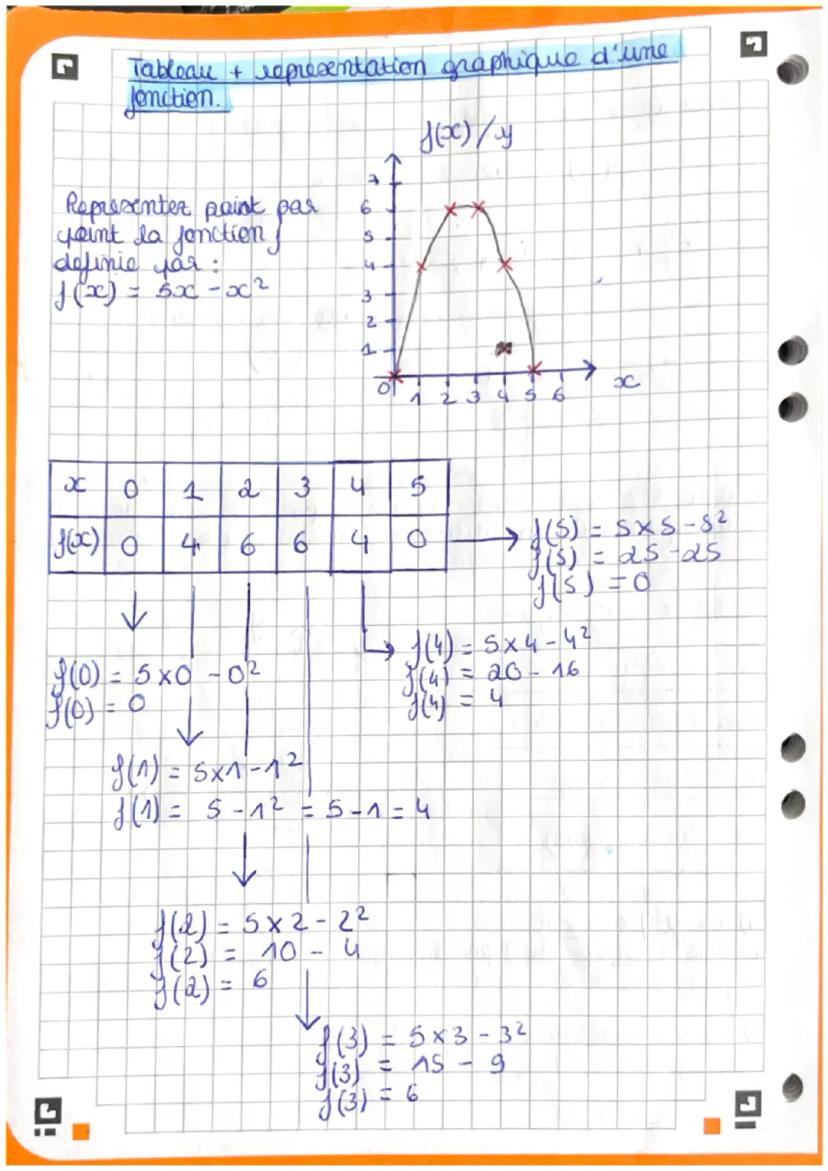 Tableau + representation graphique d'une
fonction.
f(x)/y
Representer point par
point la fonction f
definie par :
f(x) = 5x - x²
7
6
5
4
3
2
1
0 1 2 3 4 5 6 x
x 0 1 2 3 4 5
f(x) 0 4 6 6 4 0
f(5) = 5x5-5²
f(5) = 25-25
f(5) = 0
f(4) = 5x4-4²
f(4) = 20-16
f(4) = 4
f(0) = 5x0 - 0²
f(0) = 0
f(1) = 5x1-1²
f(1) = 5 - 1² = 5-1 = 4
f(2) = 5x2-2²
f(2) = 10 - 4
f(2) = 6
f(3) = 5x3-3²
f(3) = 15 - 9
f(3) = 6